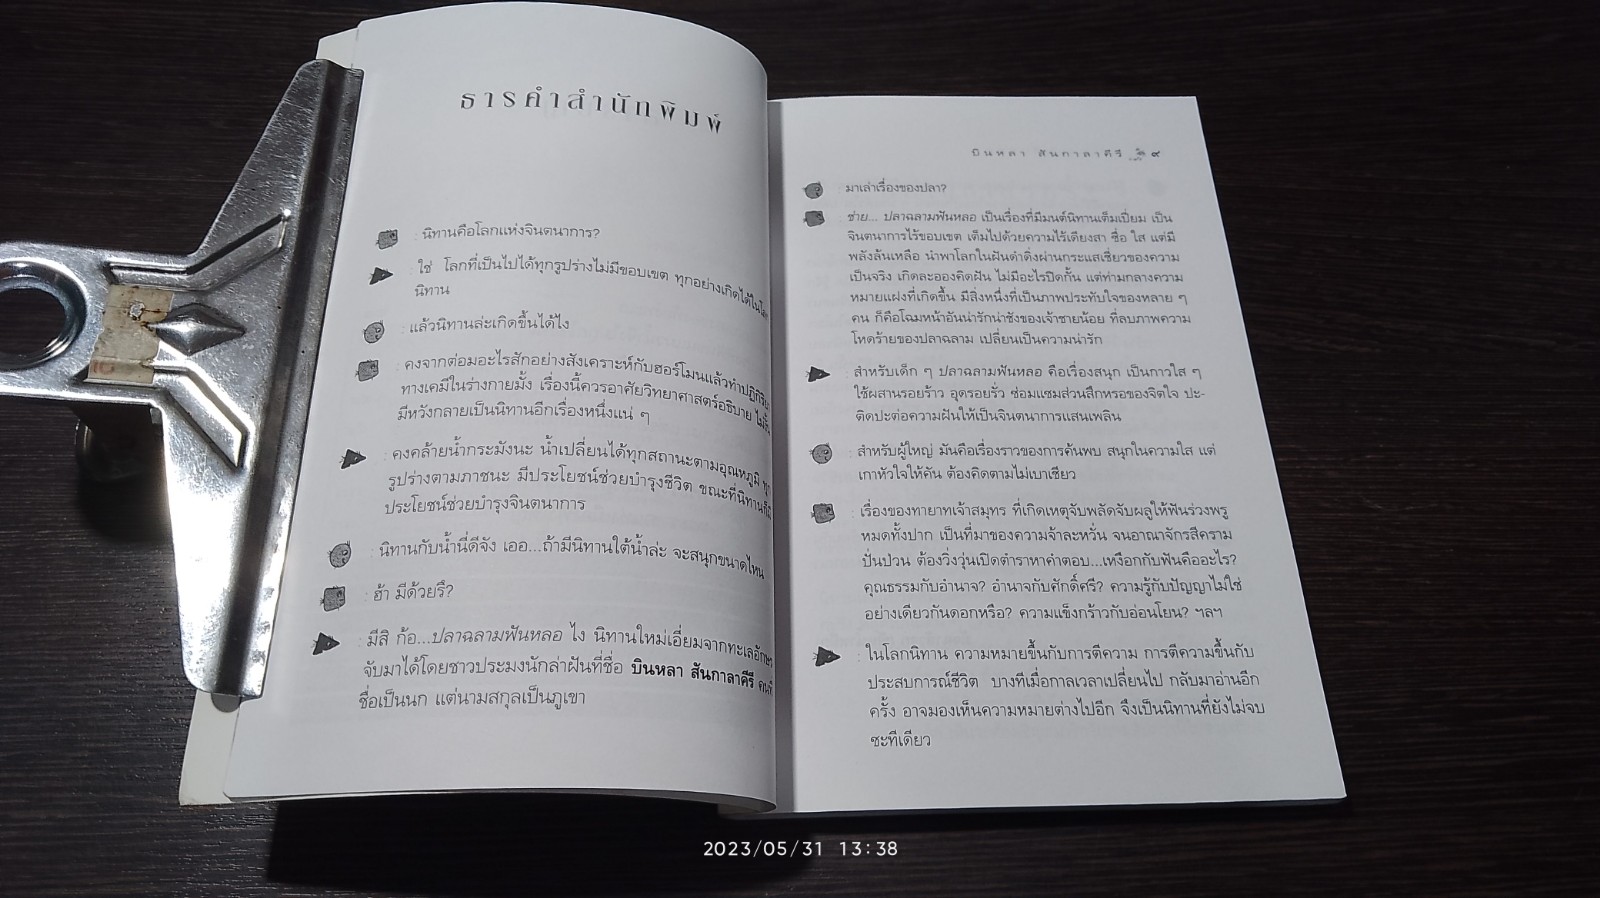 ธารคำสำนักพิมพ์
: นิทานคือโลกแห่งจินตนาการ?
: ใช่ โลกที่เป็นไปได้ทุกรูปร่างไม่มีขอบเขต ทุกอย่างเกิดได้ใน
นิทาน
: แล้วนิทานล่ะเกิดขึ้นได้ไง
: คงจากต่อมอะไรสักอย่างสังเคราะห์กับฮอร์โมนแล้วทำปฏิกิริยา
ทางเคมีในร่างกายมั้ง เรื่องนี้ควรอาศัยวิทยาศาสตร์อธิบาย
มีหวังกลายเป็นนิทานอีกเรื่องหนึ่งแน่ ๆ
: คงคล้ายน้ำกระมังนะ น้ำเปลี่ยนได้ทุกสถานะตามอุณหภูมิ ทุก
รูปร่างตามภาชนะ มีประโยชน์ช่วยบำรุงชีวิต ขณะที่นิทานก็มี
ประโยชน์ช่วยบำรุงจินตนาการ
: นิทานกับน้ำนี่ดีจัง เออ...ถ้ามีนิทานใต้น้ำล่ะ จะสนุกขนาดไหน
: ฮ้า มีด้วยรึ?
: มีสิ ก้อ...ปลาฉลามฟันหลอ ไง นิทานใหม่เอี่ยมจากทะเลอักษร
จับมาได้โดยชาวประมงนักล่าฝันที่ชื่อ บินหลา สันกาลาคีรี คนที่
ชื่อเป็นนก แต่นามสกุลเป็นภูเขา
บินหลา สันกาลาคีรี ๙
: มาเล่าเรื่องของปลา?
: ช่าย... ปลาฉลามฟันหลอ เป็นเรื่องที่มีมนต์นิทานเต็มเปี่ยม เป็น
จินตนาการไร้ขอบเขต เต็มไปด้วยความไร้เดียงสา ซื่อ ใส แต่มี
พลังล้นเหลือ นำพาโลกในฝันดำดิ่งผ่านกระแสเชี่ยวของความ
เป็นจริง เกิดละอองคิดฝัน ไม่มีอะไรปิดกั้น แต่ท่ามกลางความ
หมายแฝงที่เกิดขึ้น มีสิ่งหนึ่งที่เป็นภาพประทับใจของหลาย ๆ
คน ก็คือโฉมหน้าอันน่ารักน่าชังของเจ้าชายน้อย ที่ลบภาพความ
โหดร้ายของปลาฉลาม เปลี่ยนเป็นความน่ารัก
: สำหรับเด็ก ๆ ปลาฉลามฟันหลอ คือเรื่องสนุก เป็นกาวใส ๆ
ใช้ผสานรอยร้าว อุดรอยรั่ว ซ่อมแซมส่วนสึกหรอของจิตใจ ปะ-
ติดปะต่อความฝันให้เป็นจินตนาการแสนเพลิน
: สำหรับผู้ใหญ่ มันคือเรื่องราวของการค้นพบ สนุกในความใส แต่
เกาหัวใจให้คัน ต้องคิดตามไม่เบาเชียว
: เรื่องของทายาทเจ้าสมุทร ที่เกิดเหตุจับพลัดจับผลูให้ฟันร่วงพรู
หมดทั้งปาก เป็นที่มาของความจ้าละหวั่น จนอาณาจักรสีคราม
ปั่นป่วน ต้องวิ่งวุ่นเปิดตำราหาคำตอบ...เหงือกกับฟันคืออะไร?
คุณธรรมกับอำนาจ? อำนาจกับศักดิ์ศรี? ความรู้กับปัญญาไม่ใช่
อย่างเดียวกันดอกหรือ? ความแข็งกร้าวกับอ่อนโยน? ฯลฯ
: ในโลกนิทาน ความหมายขึ้นกับการตีความ การตีความขึ้นกับ
ประสบการณ์ชีวิต บางทีเมื่อกาลเวลาเปลี่ยนไป กลับมาอ่านอีก
ครั้ง อาจมองเห็นความหมายต่างไปอีก จึงเป็นนิทานที่ยังไม่จบ
ซะทีเดียว
2023/05/31 13:38